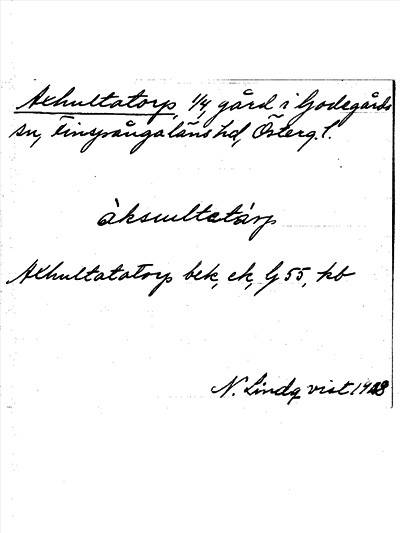 Axhultatorp, 1/4 gård i Godegårds
sn, Finspångaläns hd, Österg. l.
àksulltatàrp
Axhultatorp bek, ek, G 55, kb
N. Lindqvist 1928